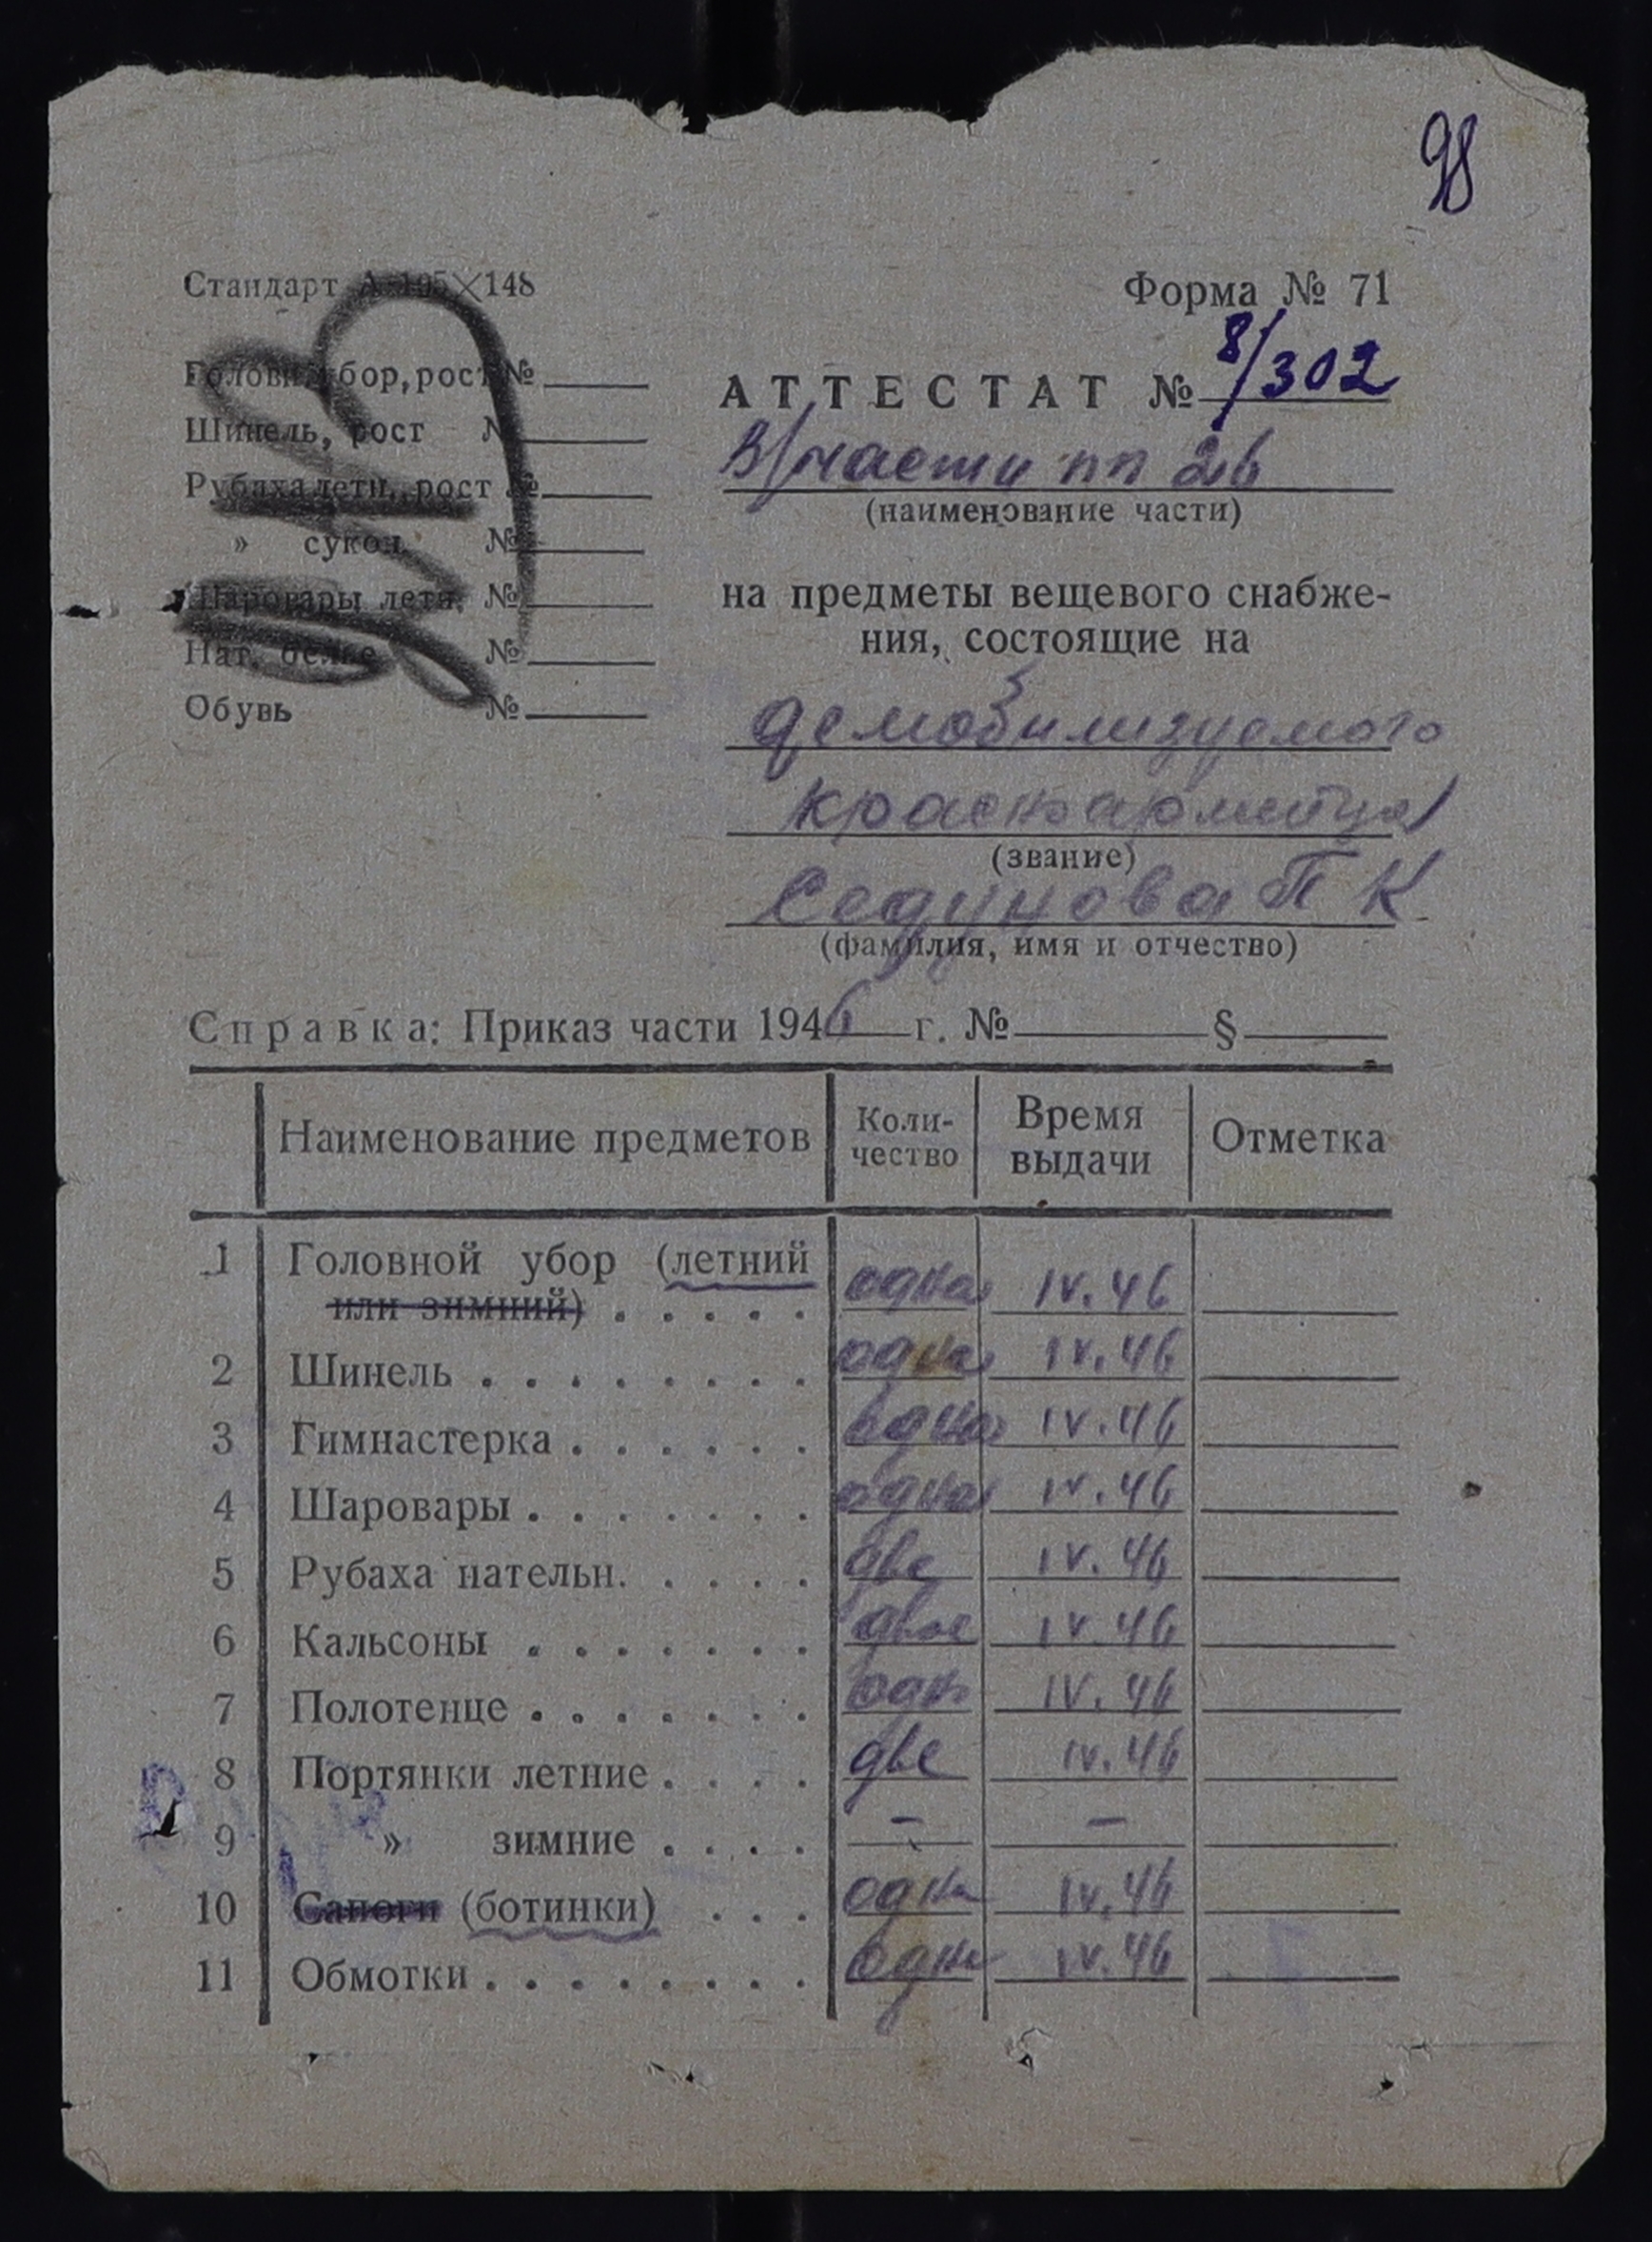 98
Стандарт А 105×148
Форма № 71
Головн. убор, рост №
Шинель, рост №
Рубаха летн., рост №
» сукон. №
Шаровары летн. №
Нат. белье №
Обувь №
АТТЕСТАТ № 8/302
В/части пп 26
(наименование части)
на предметы вещевого снабже-
ния, состоящие на
демобилизуемого
красноармейца
(звание)
Седунова П К
(фамилия, имя и отчество)
Справка: Приказ части 1946 г. № §
Наименование предметов Коли-чество Время выдачи Отметка
1 Головной убор (летний
или зимний) . . . . . одна IV.46
2 Шинель . . . . . . . . одна IV.46
3 Гимнастерка . . . . . . одна IV.46
4 Шаровары . . . . . . . одна IV.46
5 Рубаха нательн. . . . . две IV.46
6 Кальсоны . . . . . . . двое IV.46
7 Полотенце . . . . . . . одн IV.46
8 Портянки летние . . . . две IV.46
9 » зимние . . . . – –
10 Сапоги (ботинки) . . . одна IV.46
11 Обмотки . . . . . . . . одна IV.46